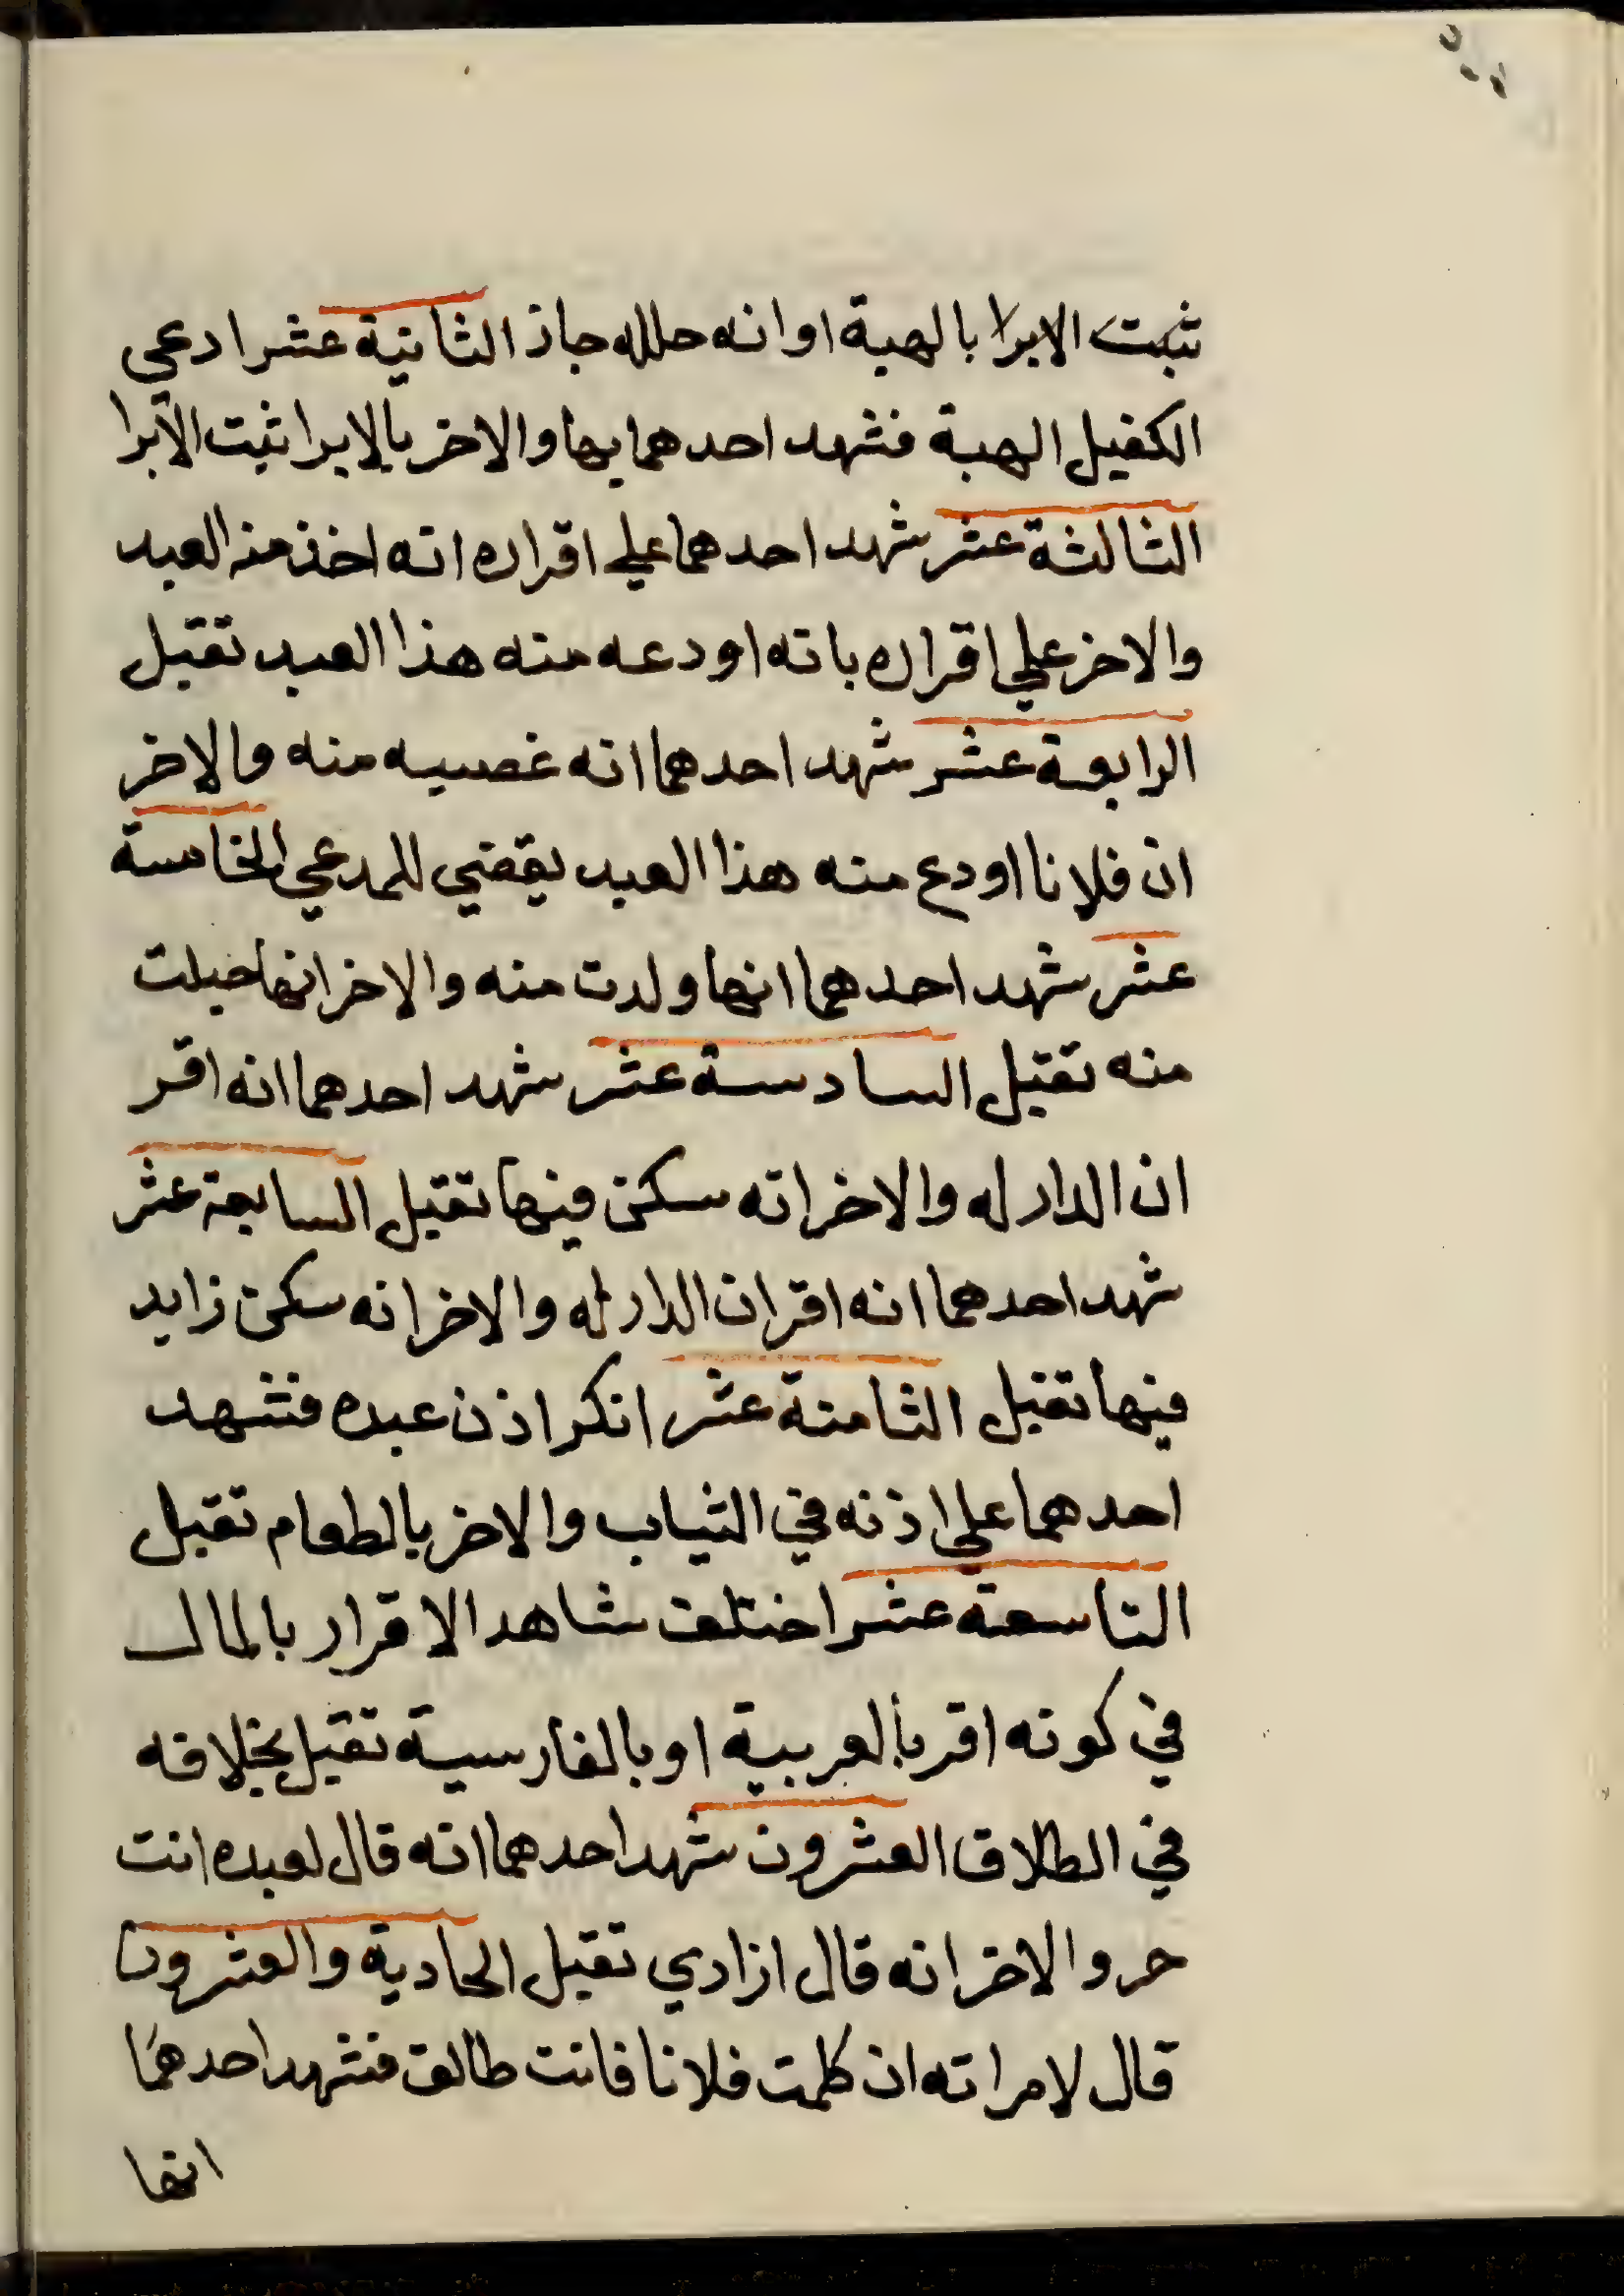 ثبت الابرا بالهبة او انه حلله جاز الثانية عشر ادعي
الكفيل الهبة فشهد احدهما بها والاخر بالابرا ثبت الابرا
الثالثة عشر شهد احدهما علي اقراره انه اخذ منه العبد
والاخر علي اقراره بانه اودعه منه هذا العبد تقبل
الرابعة عشر شهد احدهما انه غصبه منه والاخر
ان فلانا اودع منه هذا العبد يقضي للمدعي الخامسة
عشر شهد احدهما انها ولدت منه والاخر انها حبلت
منه تقبل السادسة عشر شهد احدهما انه اقر
ان الدار له والاخر انه سكن فيها تقبل السابعة عشر
شهد احدهما انه اقر ان الدار له والاخر انه سكن زايد
فيها تقبل الثامنة عشر انكر اذن عبده فشهد
احدهما علي اذنه في الثياب والاخر بالطعام تقبل
التاسعة عشر اختلف شاهد الاقرار بالمال
في كونه اقر بالعربية او بالفارسية تقبل بخلافه
في الطلاق العشرون شهد احدهما انه قال لعبده انت
حر والاخر انه قال ازادي تقبل الحادية والعشرون
قال لامراته ان كلمت فلانا فانت طالق فشهد احدهما
انها